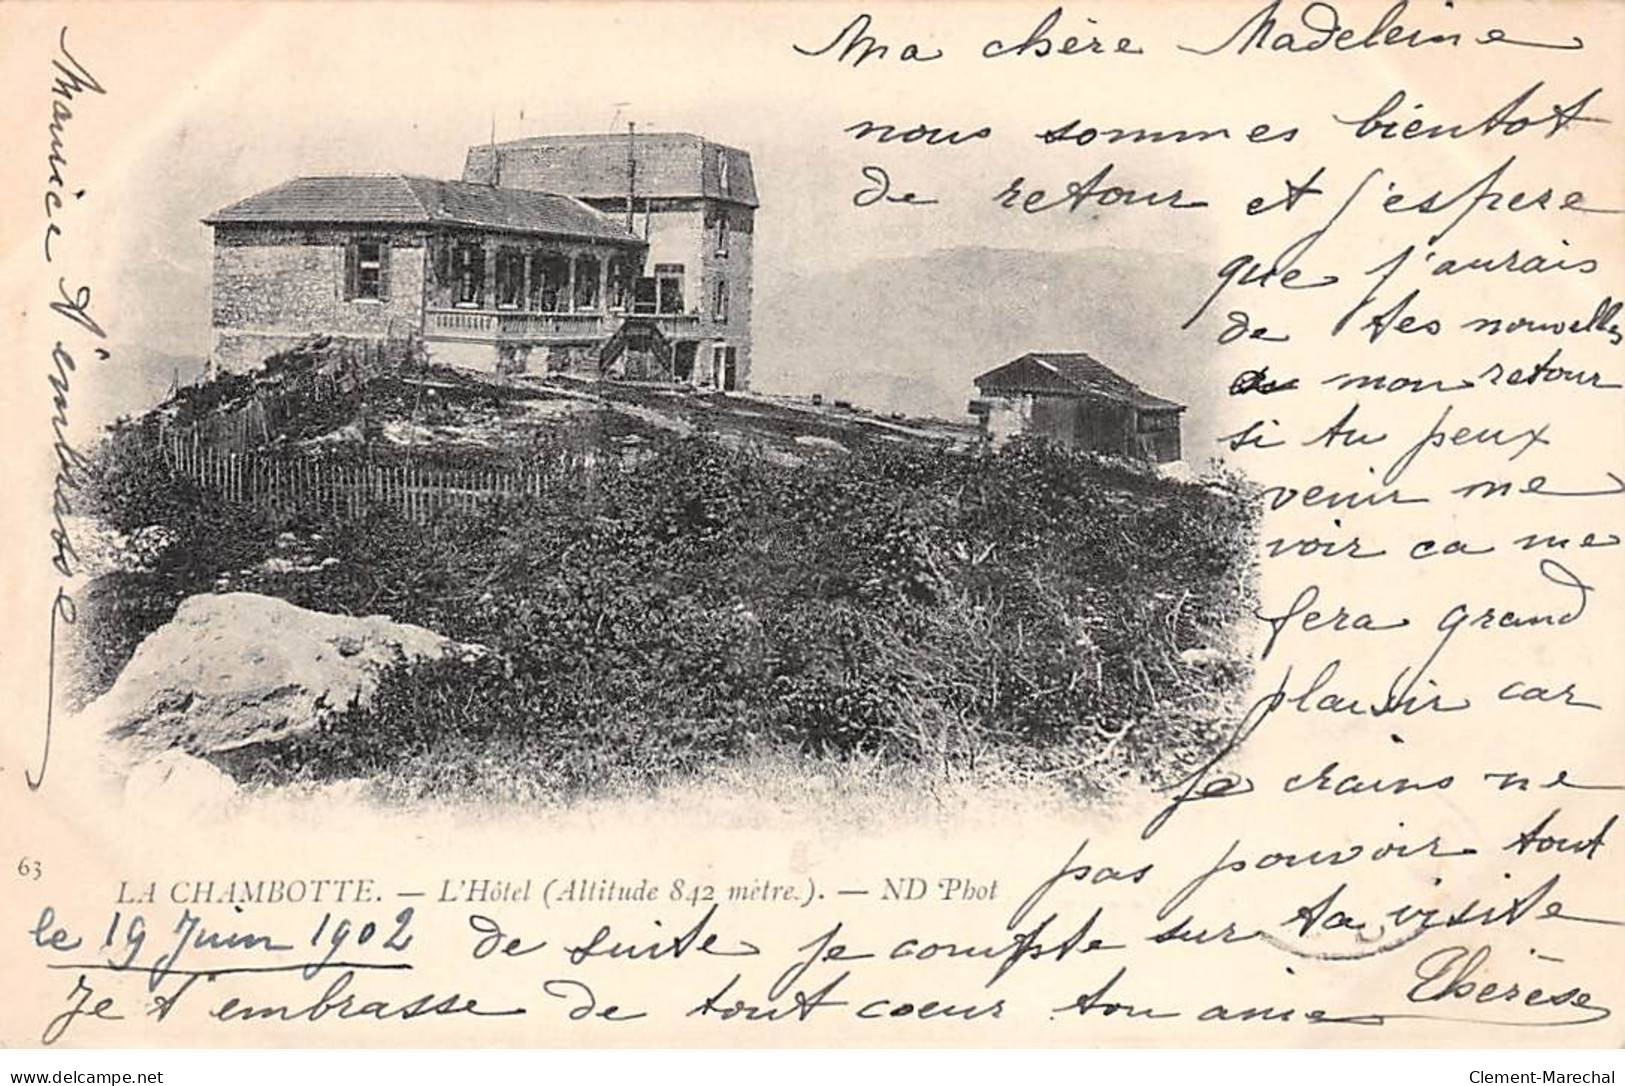 Ma chère Madeleine
nous sommes bientot
de retour et j'espere
que j'aurais
de tes nouvelles
a mon retour
si tu peux
venir me
voir ca me
fera grand
plaisir car
je crains ne
pas pouvoir tout
de suite je compte sur ta visite
Je t'embrasse de tout coeur ton amie Thérèse
le 19 Juin 1902
Maurice t'embrasse
63
LA CHAMBOTTE. — L'Hôtel (Altitude 842 mètre.). — ND Phot
www.delcampe.net
Clement-Marechal